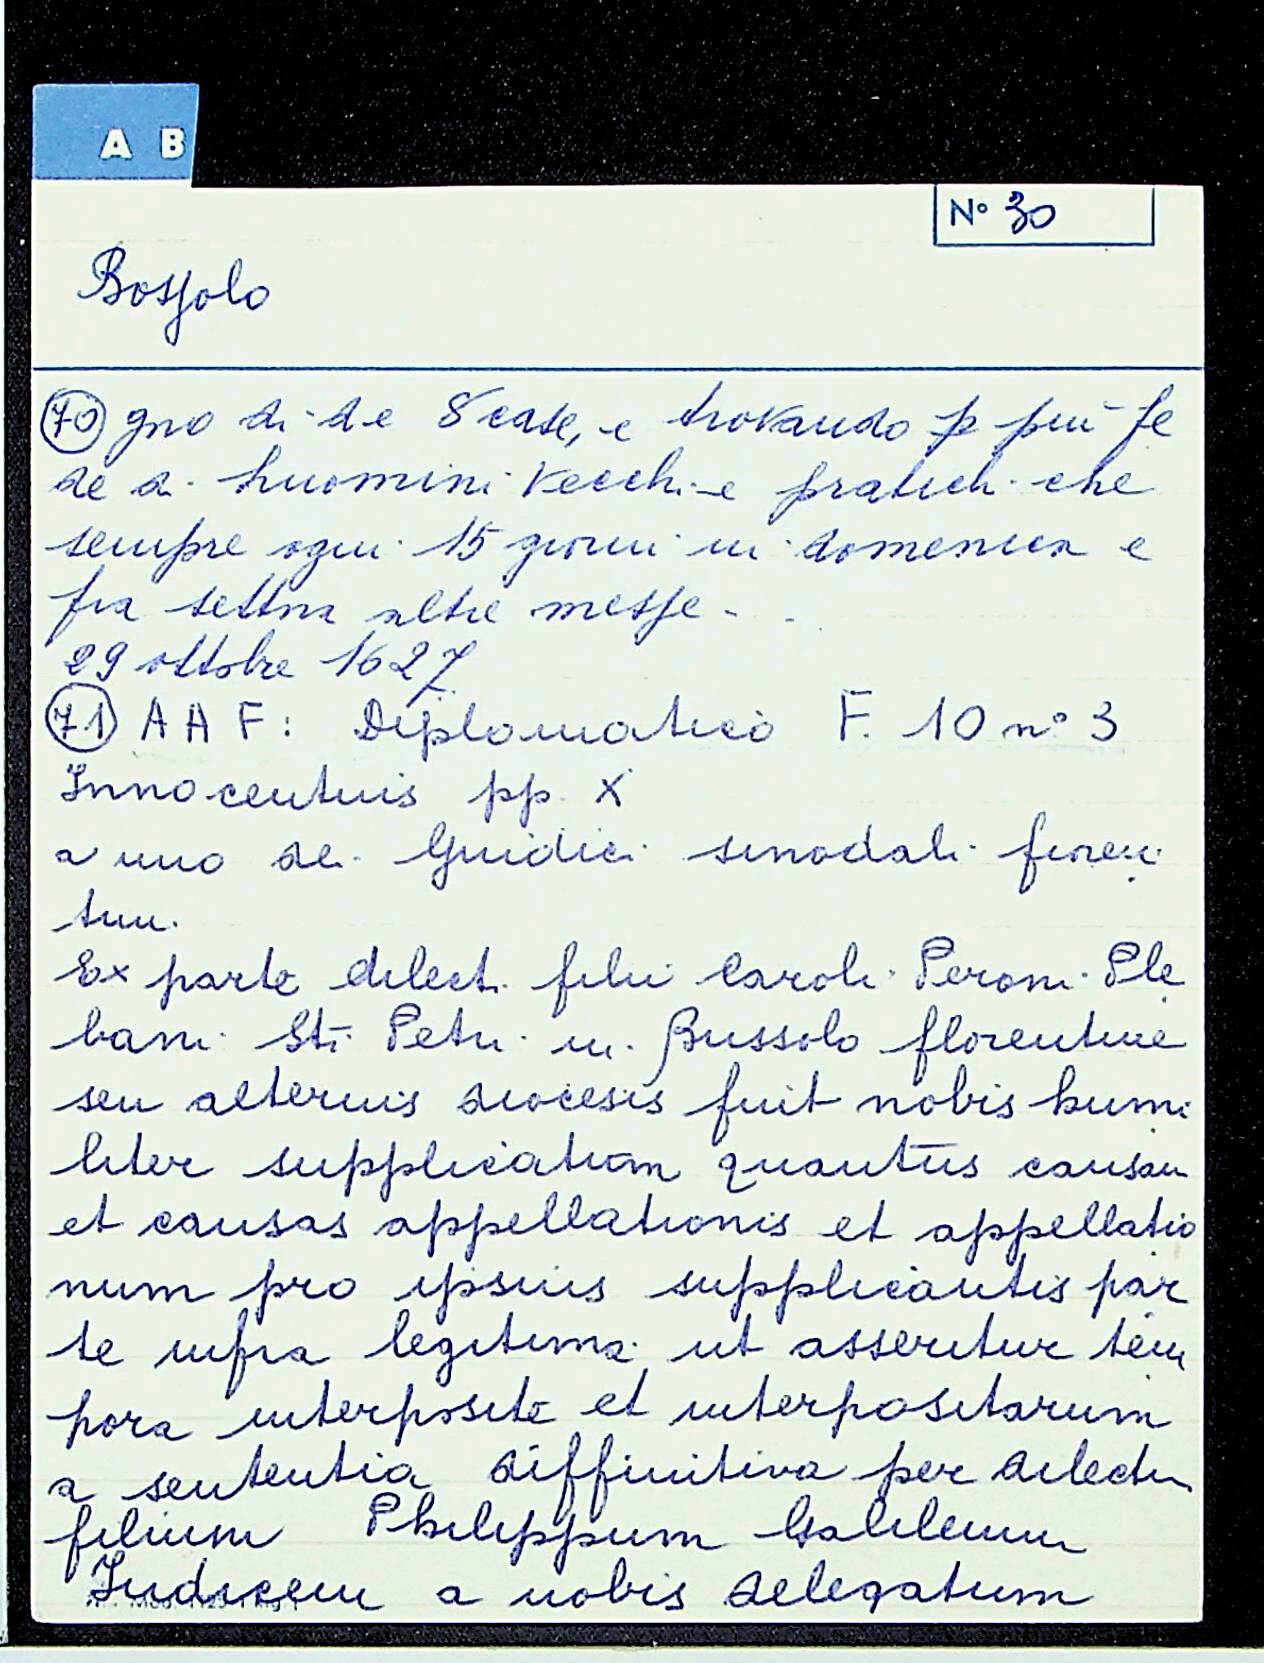 A B
N° 30
Bossolo
70 gno di de 8 case, e trovando p più fe
de di huomini vecchi e pratichi che
sempre ogni 15 giorni in domenica e
fra settna altre messe -
29 ottobre 1627
71 A A F: Diplomatico F. 10 n° 3
Innocentius pp. X
a uno dei Giudici sinodali fioren
tini.
Ex parte dilecti filii Caroli Peroni Ple
bani Sti Petri in Bussolo florentine
seu alterius diocesis fuit nobis humi
liter supplicatum quantus causam
et causas appellationis et appellatio
num pro ipsius supplicantis par
te infra legitima ut asseritur tem
pora interposite et interpositarum
a sententia diffinitiva per dilectum
filium Philippum Galileum
Iudicem a nobis delegatum